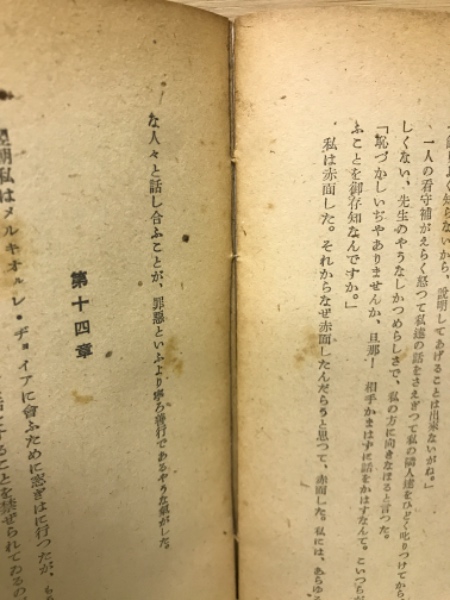 よく知らないから、説明してあげることは出來ないがね。」
一人の看守補がえらく怒つて私達の話をさえぎつて私の隣人達をひどく叱りつけてから、
しくない、先生のやうなしかつめらしさで、私の方に向きなほると言つた。
「恥づかしいぢやありませんか、旦那！　相手かまはずに話をかはすなんて。こいつが
ふことを御存知なんですか。」
私は赤面した。それからなぜ赤面したんだらうと思つて、赤面した。私には、あらゆ
な人々と話し合ふことが、罪惡といふより寧ろ善行であるやうな氣がした。
第十四章
翌朝私はメルキオルレ・ヂョイアに會ふために窓ぎはに行つたが、もう
にすることを禁ぜられてゐるの